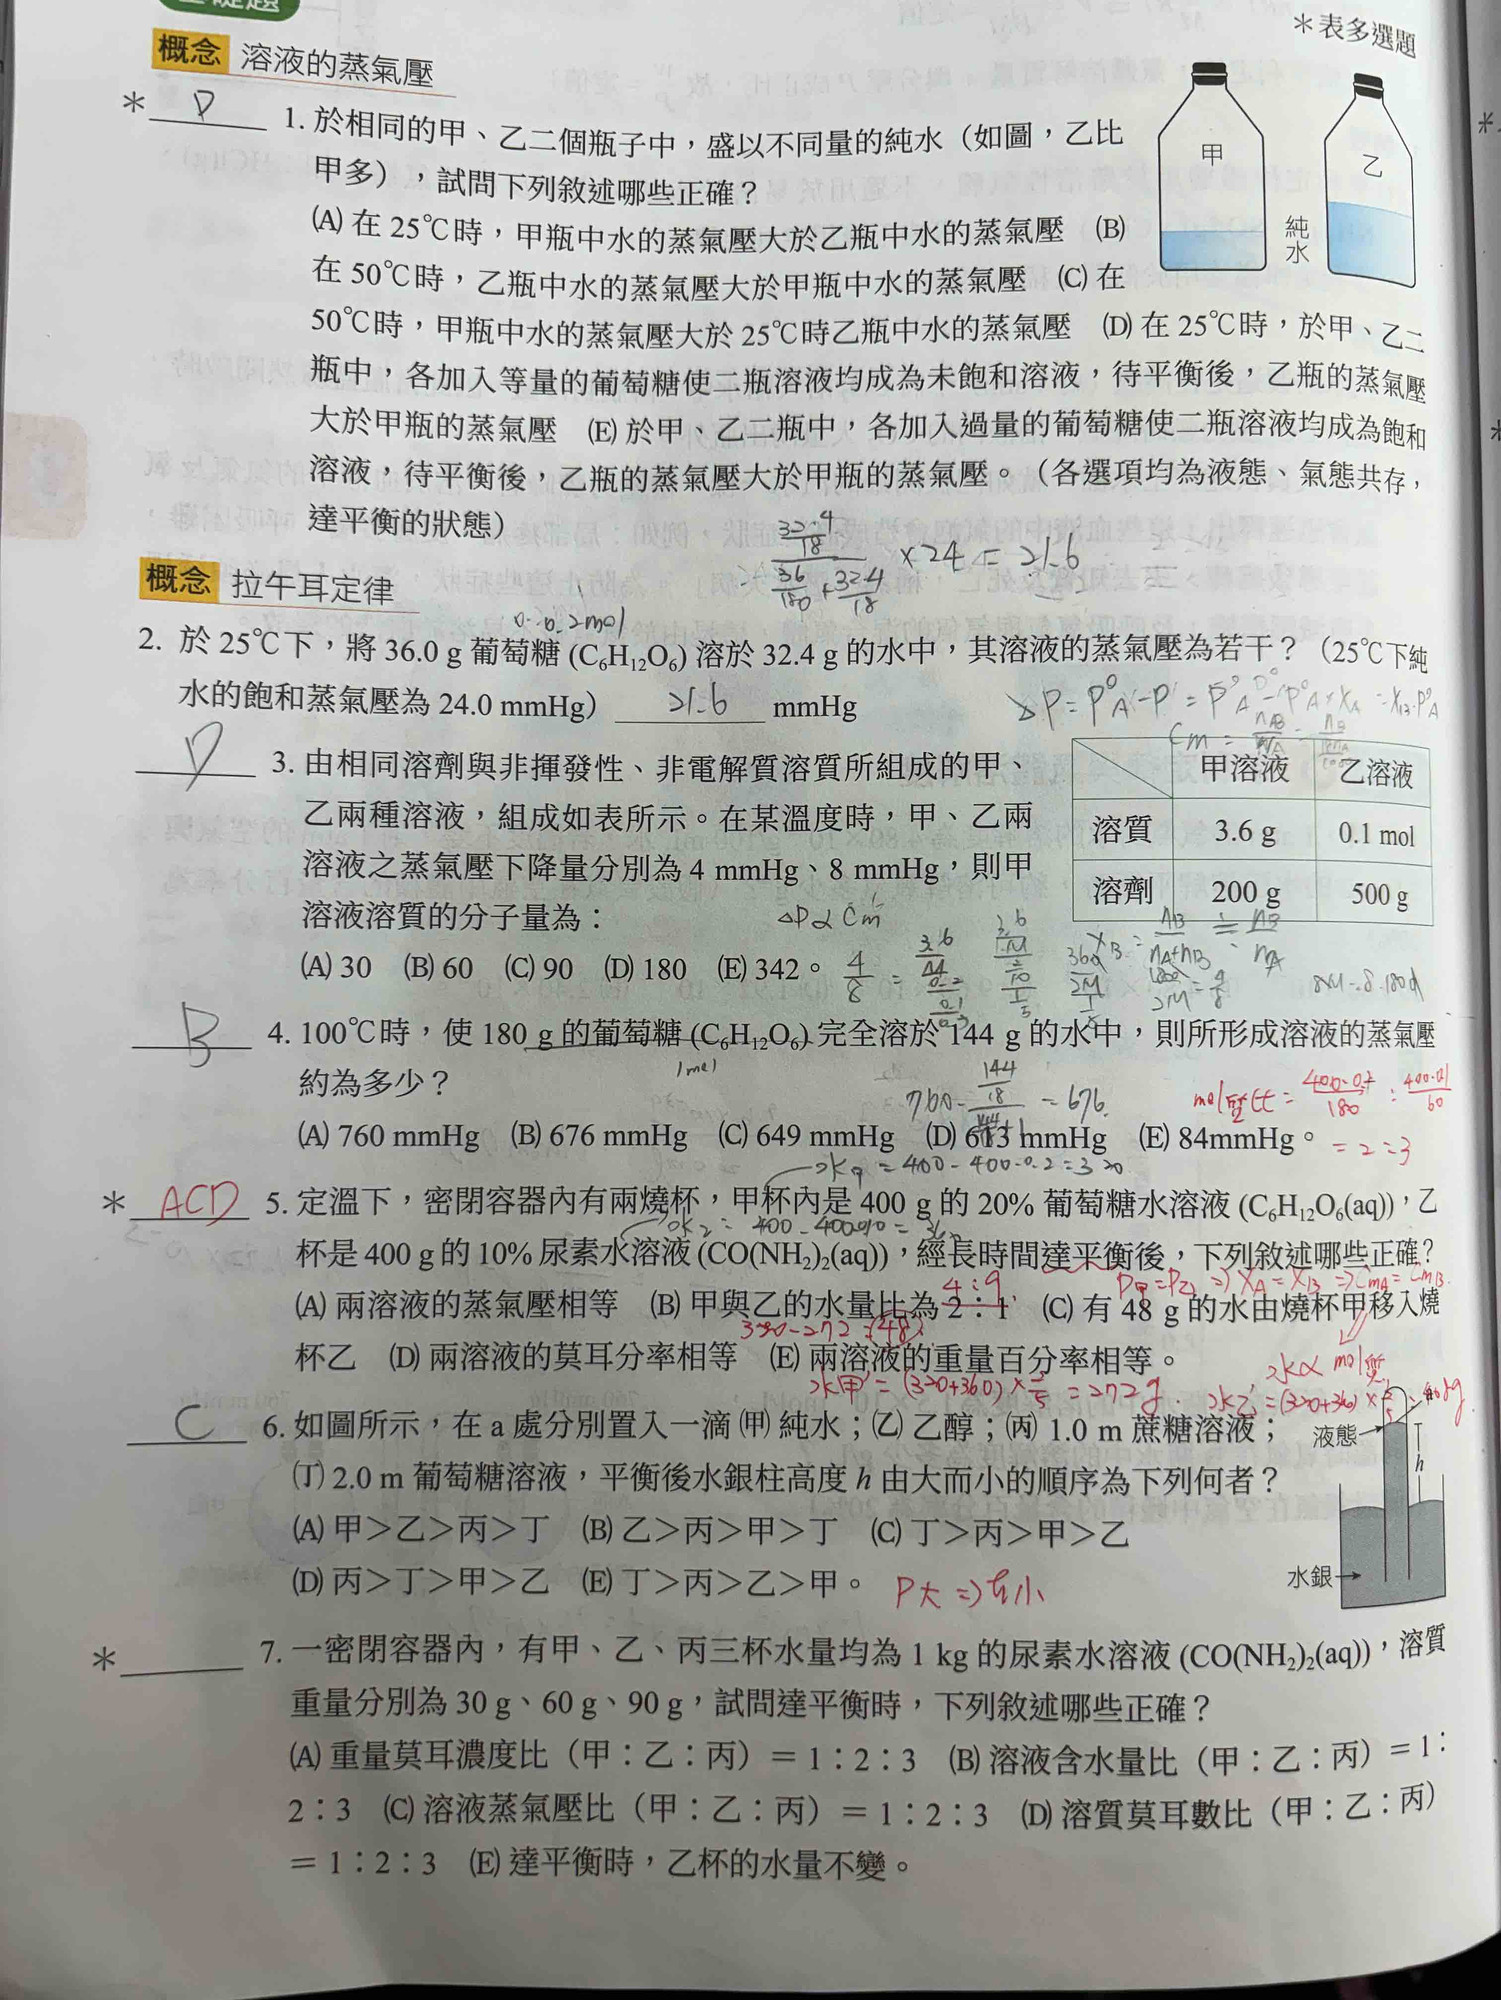 ＊表多選題
概念 溶液的蒸氣壓
甲
乙
純水
＊ D 1. 於相同的甲、乙二個瓶子中，盛以不同量的純水（如圖，乙比
甲多），試問下列敘述哪些正確？
(A) 在 25℃時，甲瓶中水的蒸氣壓大於乙瓶中水的蒸氣壓 (B)
在 50℃時，乙瓶中水的蒸氣壓大於甲瓶中水的蒸氣壓 (C) 在
50℃時，甲瓶中水的蒸氣壓大於 25℃時乙瓶中水的蒸氣壓 (D) 在 25℃時，於甲、乙二
瓶中，各加入等量的葡萄糖使二瓶溶液均成為未飽和溶液，待平衡後，乙瓶的蒸氣壓
大於甲瓶的蒸氣壓 (E) 於甲、乙二瓶中，各加入過量的葡萄糖使二瓶溶液均成為飽和
溶液，待平衡後，乙瓶的蒸氣壓大於甲瓶的蒸氣壓。（各選項均為液態、氣態共存，
達平衡的狀態）
概念 拉午耳定律
2. 於 25℃下，將 36.0 g 葡萄糖 (C₆H₁₂O₆) 溶於 32.4 g 的水中，其溶液的蒸氣壓為若干？（25℃下純
水的飽和蒸氣壓為 24.0 mmHg） 21.6 mmHg
D 3. 由相同溶劑與非揮發性、非電解質溶質所組成的甲、
乙兩種溶液，組成如表所示。在某溫度時，甲、乙兩
溶液之蒸氣壓下降量分別為 4 mmHg、8 mmHg，則甲
溶液溶質的分子量為：
(A) 30 (B) 60 (C) 90 (D) 180 (E) 342。
甲溶液 乙溶液
溶質 3.6 g 0.1 mol
溶劑 200 g 500 g
B 4. 100℃時，使 180 g 的葡萄糖 (C₆H₁₂O₆) 完全溶於 144 g 的水中，則所形成溶液的蒸氣壓
1mol
約為多少？
(A) 760 mmHg (B) 676 mmHg (C) 649 mmHg (D) 613 mmHg (E) 84mmHg。
＊ ACD 5. 定溫下，密閉容器內有兩燒杯，甲杯內是 400 g 的 20% 葡萄糖水溶液 (C₆H₁₂O₆(aq))，乙
杯是 400 g 的 10% 尿素水溶液 (CO(NH₂)₂(aq))，經長時間達平衡後，下列敘述哪些正確？
(A) 兩溶液的蒸氣壓相等 (B) 甲與乙的水量比為 2：1 (C) 有 48 g 的水由燒杯甲移入燒
杯乙 (D) 兩溶液的莫耳分率相等 (E) 兩溶液的重量百分率相等。
C 6. 如圖所示，在 a 處分別置入一滴 (甲) 純水；(乙) 乙醇；(丙) 1.0 m 蔗糖溶液；
(丁) 2.0 m 葡萄糖溶液，平衡後水銀柱高度 h 由大而小的順序為下列何者？
(A) 甲＞乙＞丙＞丁 (B) 乙＞丙＞甲＞丁 (C) 丁＞丙＞甲＞乙
(D) 丙＞丁＞甲＞乙 (E) 丁＞丙＞乙＞甲。
P大 ⇒ h小
液態
h
水銀
＊ 7. 一密閉容器內，有甲、乙、丙三杯水量均為 1 kg 的尿素水溶液 (CO(NH₂)₂(aq))，溶質
重量分別為 30 g、60 g、90 g，試問達平衡時，下列敘述哪些正確？
(A) 重量莫耳濃度比（甲：乙：丙）＝ 1：2：3 (B) 溶液含水量比（甲：乙：丙）＝ 1：
2：3 (C) 溶液蒸氣壓比（甲：乙：丙）＝ 1：2：3 (D) 溶質莫耳數比（甲：乙：丙）
＝ 1：2：3 (E) 達平衡時，乙杯的水量不變。